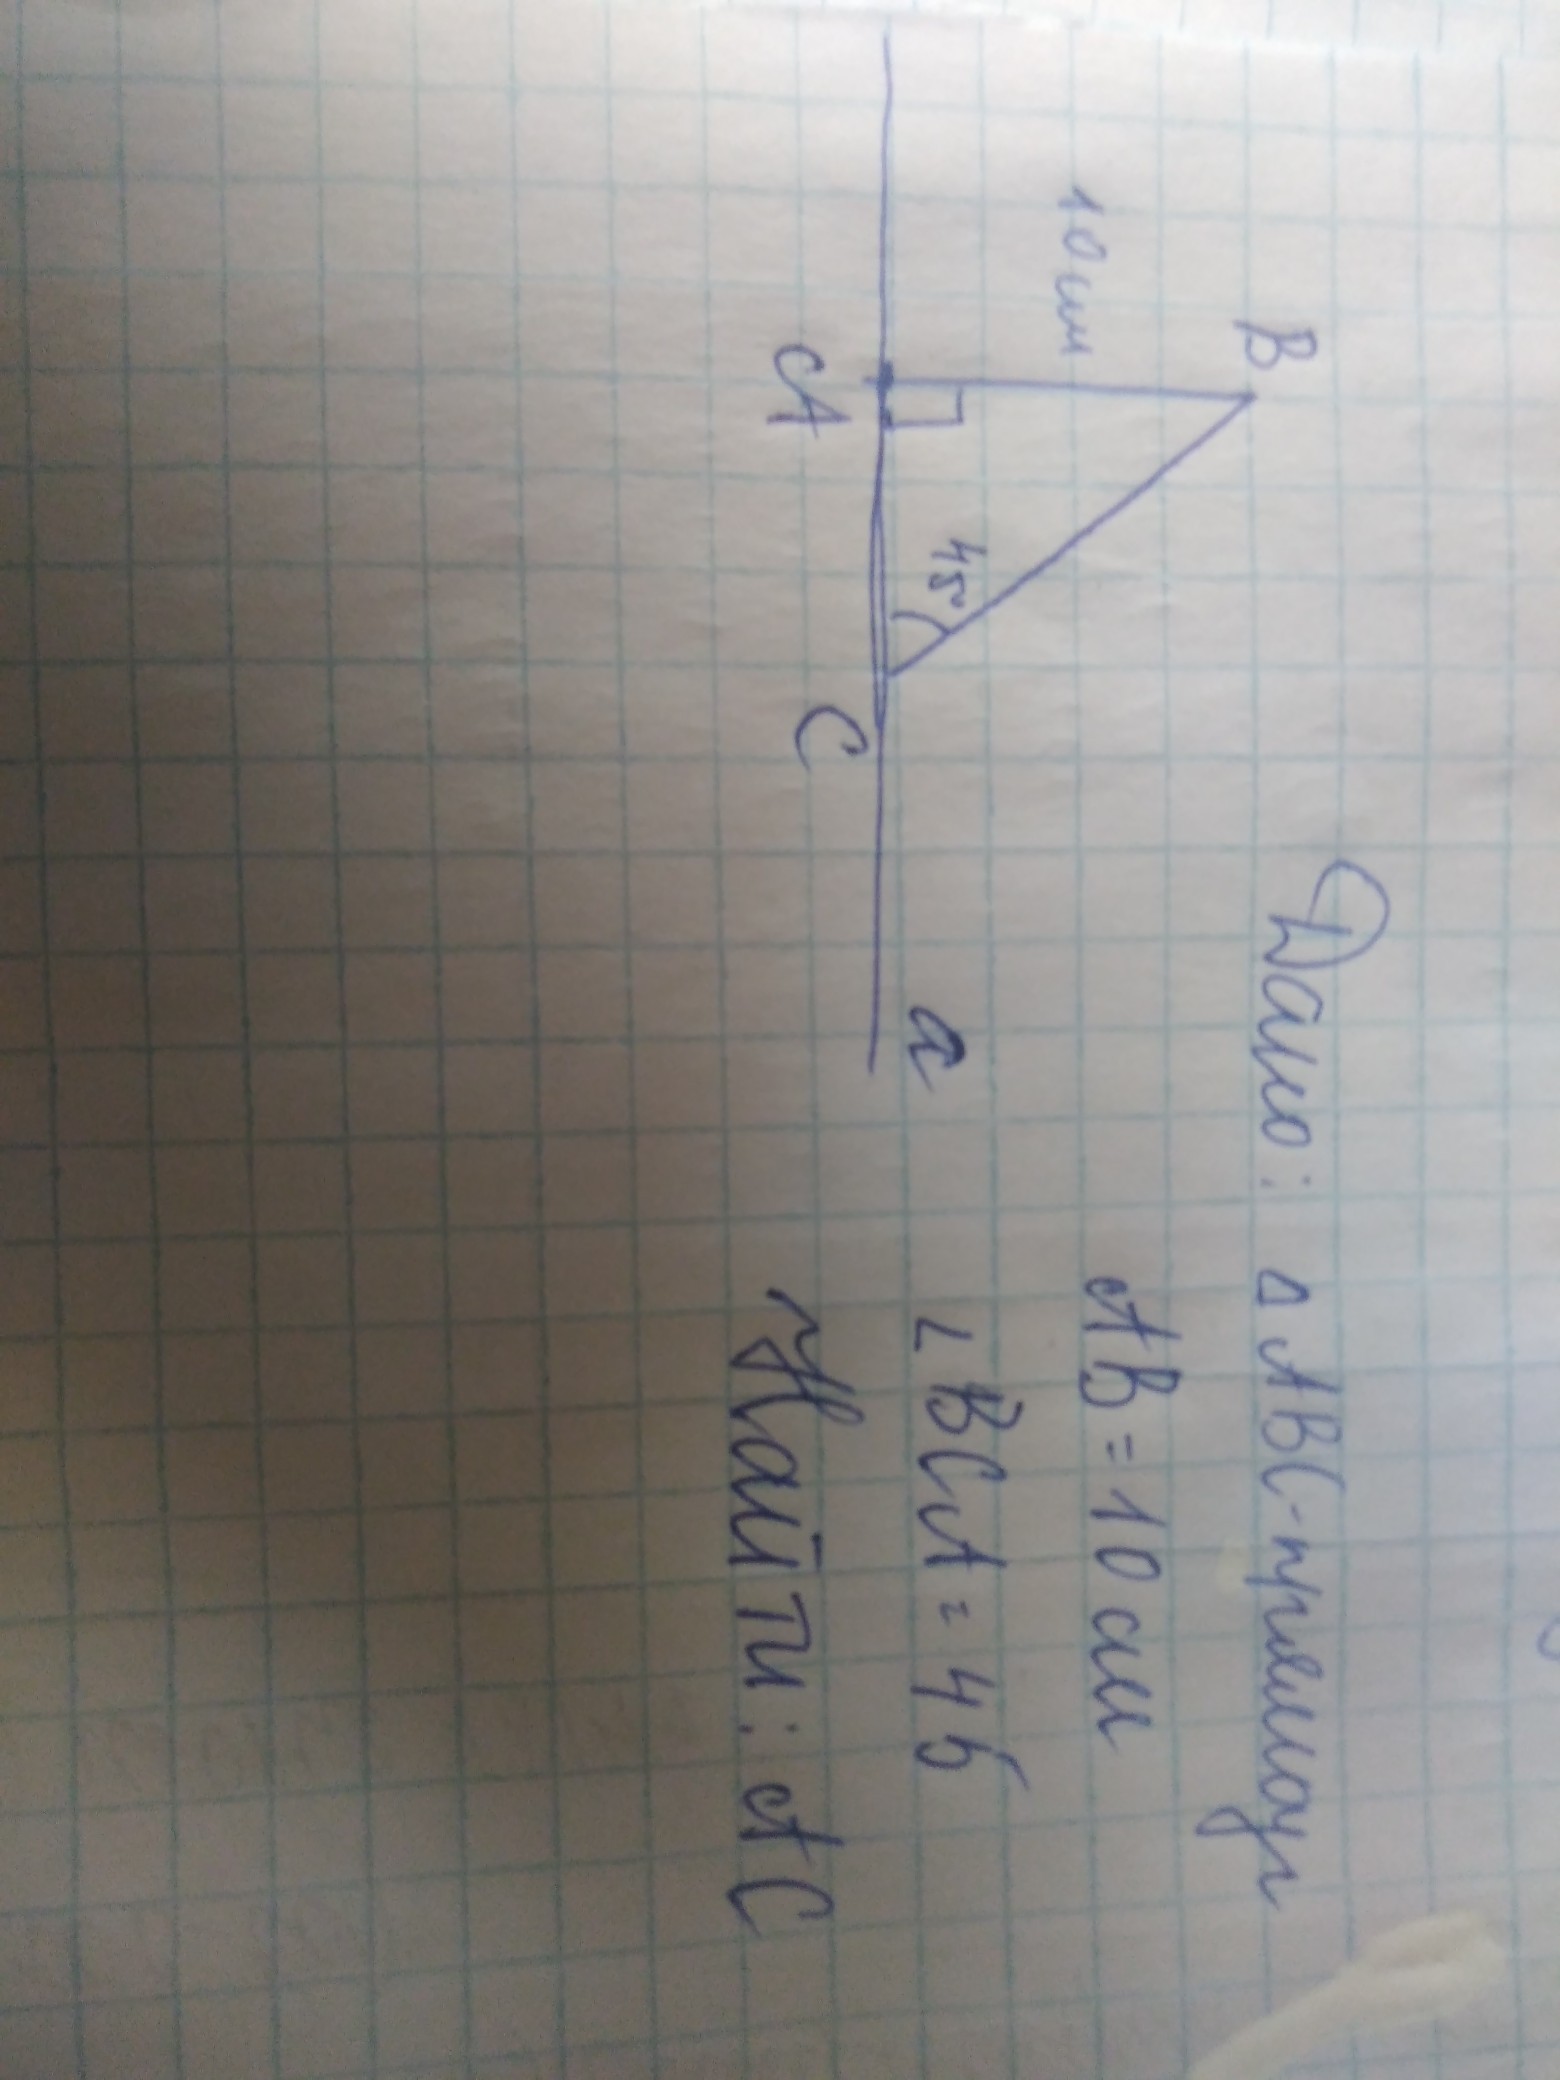 B
10 см
45°
A
C
a
Дано: △ ABC - прямоуг
AB = 10 см
∠ BCA = 45
Найти: AC